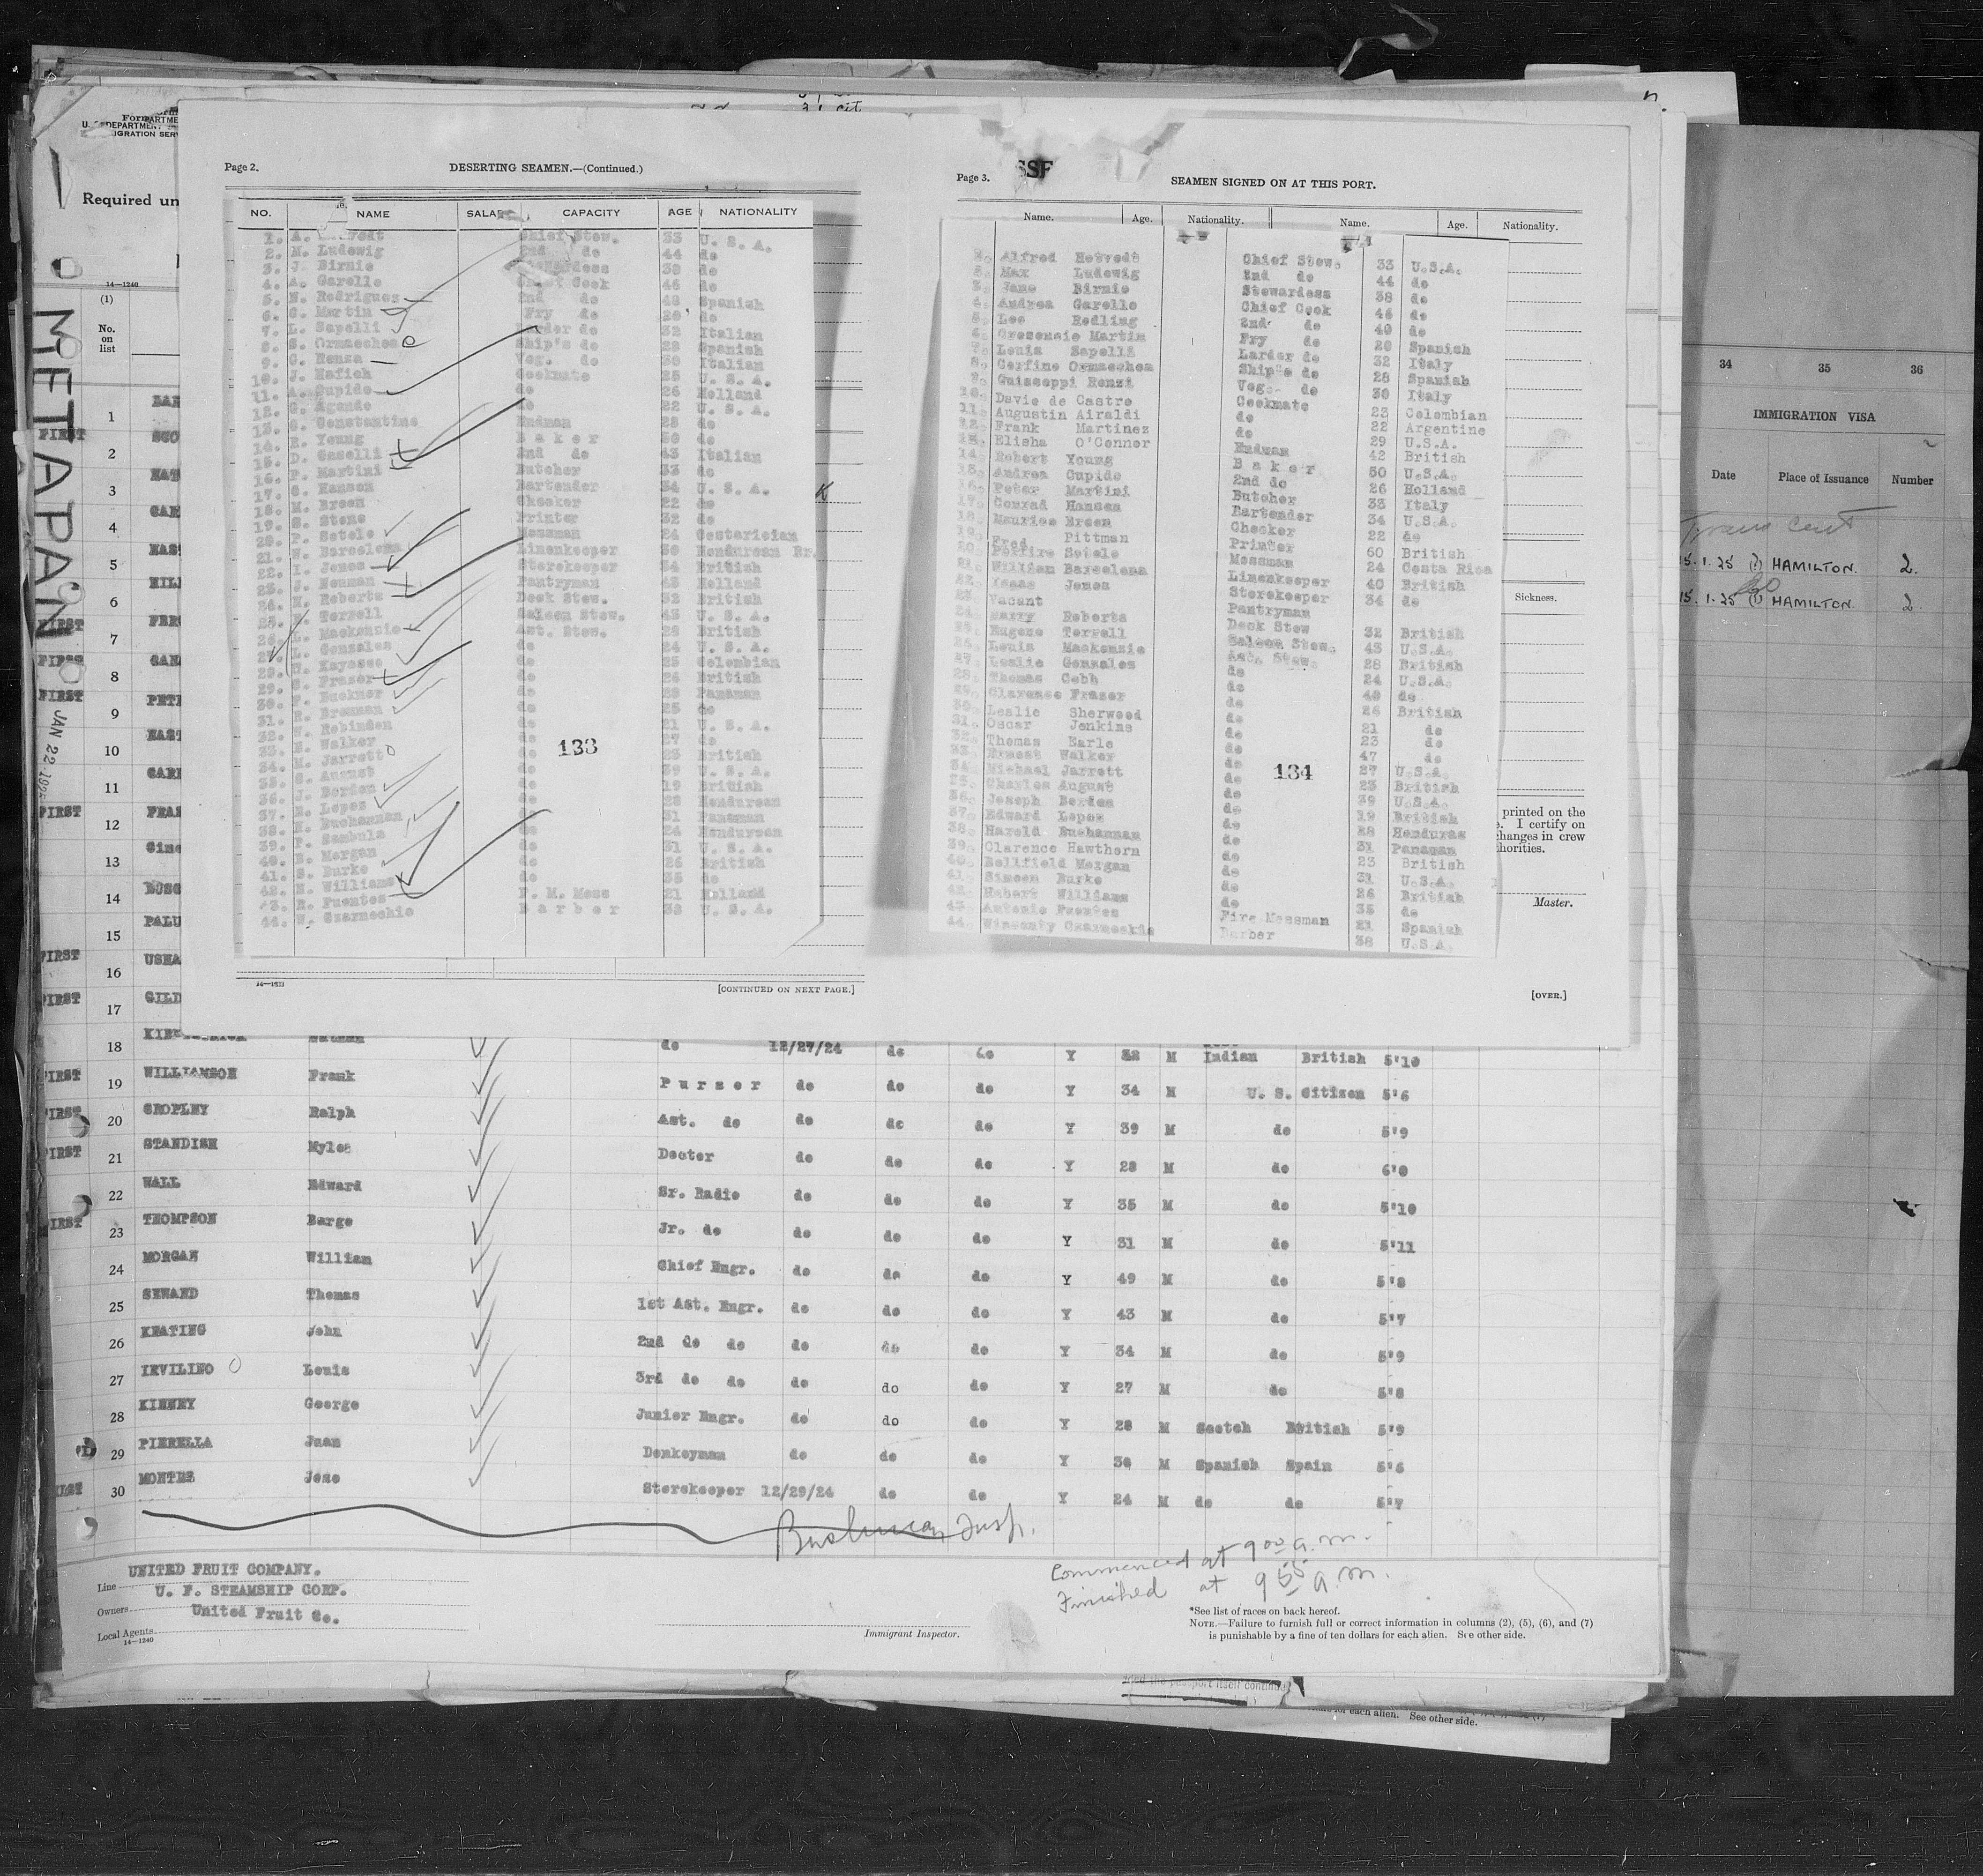 Form
U. S. DEPARTMENT
IMMIGRATION SERV
Required un
14—1240
(1)
No.
on
list
METAPAN
JAN 22 1925
Page 2.
DESERTING SEAMEN.—(Continued.)
NO. NAME SALA CAPACITY AGE NATIONALITY
1. A. Chief Stew. 33 U. S. A.
2. M. Ludewig 2nd do 44 do
3. J. Birnie Stewardess 38 do
4. A. Garelle Chief Cook 46 do
5. N. Rodrigues 2nd do 48 Spanish
6. C. Martin Fry do 20 do
7. L. Sapelli Larder do 32 Italian
8. S. Ormaechea Ship's do 28 Spanish
9. G. Renza Veg. do 30 Italian
10. J. Hafich Cookmate 25 U. S. A.
11. A. Cupido do 26 Holland
12. G. Agando do 22 U. S. A.
13. G. Constantine Endman 28 do
14. R. Young Baker 50 do
15. D. Caselli 2nd do 43 Italian
16. P. Martini Butcher 33 do
17. C. Hanson Bartender 34 U. S. A.
18. M. Breen Checker 22 do
19. S. Stone Printer 32 do
20. P. Sotelo Messman 24 Costarician
21. W. Barcelona Linenkeeper 30 Honduran Br.
22. I. Jones Storekeeper 34 British
23. J. Neuman Pantryman 43 Holland
24. H. Roberts Deck Stew. 32 British
25. E. Terrell Saloon Stew. 43 U. S. A.
26. L. Mackenzie Ast. Stew. 28 British
27. L. Gonzales do 24 U. S. A.
28. Kayasse do 25 Colombian
29. C. Fraser do 26 British
30. Buckner do 28 Panaman
31. R. Brennan do 25 do
32. W. Robinden do 21 U. S. A.
33. E. Walker do 27 do
34. M. Jarrett do 23 British
35. C. August do 39 U. S. A.
36. J. Borden do 19 British
37. E. Lopez do 28 Honduran
38. H. Buchannan do 31 Panaman
39. P. Sambula do 24 Honduran
40. B. Morgan do 31 U. S. A.
41. S. Burke do 26 British
42. H. Williams do 35 do
43. R. Fuentes F. M. Mess 21 Holland
44. W. Czarneckie Barber 38 U. S. A.
133
14—1213
[CONTINUED ON NEXT PAGE.]
Page 3.
SSF
SEAMEN SIGNED ON AT THIS PORT.
Name. Age. Nationality. Name. Age. Nationality.
1. Alfred Hetvedt Chief Stew. 33 U.S.A.
2. Max Ludewig 2nd do 44 do
3. Jane Birnie Stewardess 38 do
4. Andrea Garelle Chief Cook 46 do
5. Lee Redling 2nd do 40 do
6. Cresensio Martin Fry do 20 Spanish
7. Louis Sapelli Larder do 32 Italy
8. Cerfino Ormaechea Ship's do 28 Spanish
9. Guiseppi Renzi Veg. do 30 Italy
10. Davie de Castro Cookmate 23 Colombian
11. Augustin Airaldi do 22 Argentine
12. Frank Martinez do 29 U.S.A.
13. Elisha O'Connor Endman 42 British
14. Robert Young Baker 50 U.S.A.
15. Andrea Cupido 2nd do 26 Holland
16. Peter Martini Butcher 33 Italy
17. Conrad Hansen Bartender 34 U.S.A.
18. Maurice Breen Checker 22 do
19. Fred Pittman Printer 60 British
20. Porfiro Sotelo Messman 24 Costa Rica
21. William Barcelona Linenkeeper 40 British
22. Isaac Jones Storekeeper 34 do
23. Vacant Pantryman
24. Harry Roberts Deck Stew 32 British
25. Eugene Terrell Saloon Stew. 43 U.S.A.
26. Louis Mackenzie Ast. Stew. 28 British
27. Leslie Gonzales do 24 U.S.A.
28. Thomas Cobh do 40 do
29. Clarence Fraser do 26 British
30. Leslie Sherwood do 21 do
31. Oscar Jenkins do 23 do
32. Thomas Earle do 47 do
33. Ernest Walker do 27 U.S.A.
34. Michael Jarrett do 23 British
35. Charles August do 39 U.S.A.
36. Joseph Borden do 19 British
37. Edward Lopez do 28 Honduras
38. Harold Buchannan do 31 Panaman
39. Clarence Hawthorn do 23 British
40. Bellfield Morgan do 31 U.S.A.
41. Simeon Burke do 26 British
42. Hubert Williams do 35 do
43. Antonio Fuentes Fire Messman 21 Spanish
44. Wincenty Czarneckis Barber 38 U.S.A.
134
Sickness.
printed on the
I certify on
changes in crew
horities.
Master.
[OVER.]
34 35 36
IMMIGRATION VISA
Date Place of Issuance Number
15.1.25 HAMILTON. 2.
15.1.25 HAMILTON. 2
1
FIRST SCO
2
3
4
5
6
FIRST
7
FIRST
8
FIRST PETE
9
10
11
FIRST
12
13
14
PALU
15
FIRST
16
FIRST GILD
17
18 do 12/27/24 do do Y 32 M Indian British 5'10
FIRST 19 WILLIAMSON Frank Purser do do do Y 34 M U. S. Citizen 5'6
FIRST 20 CROPLEY Ralph Ast. do do do do Y 39 M do 5'9
FIRST 21 STANDISH Myles Doctor do do do Y 28 M do 6'0
22 WALL Edward Sr. Radio do do do Y 35 M do 5'10
FIRST 23 THOMPSON Barge Jr. do do do do Y 31 M do 5'11
24 MORGAN William Chief Engr. do do do Y 49 M do 5'8
25 SEWAND Thomas 1st Ast. Engr. do do do Y 43 M do 5'7
26 KEATING John 2nd do do do do do Y 34 M do 5'9
27 IRVILINO Louis 3rd do do do do do Y 27 M do 5'8
28 KINNEY George Junior Engr. do do do Y 28 M Scotch British 5'9
29 PIERELLA Juan Donkeyman do do do Y 30 M Spanish Spain 5'6
30 MONTES Jose Storekeeper 12/29/24 do do Y 24 M do do 5'7
Insp.
Commenced at 9 00 a.m.
Finished at 9 55 a.m.
Line UNITED FRUIT COMPANY.
Owners U. F. STEAMSHIP CORP.
Local Agents United Fruit Co.
14—1240
Immigrant Inspector.
*See list of races on back hereof.
NOTE.—Failure to furnish full or correct information in columns (2), (5), (6), and (7)
is punishable by a fine of ten dollars for each alien. See other side.
for each alien. See other side.